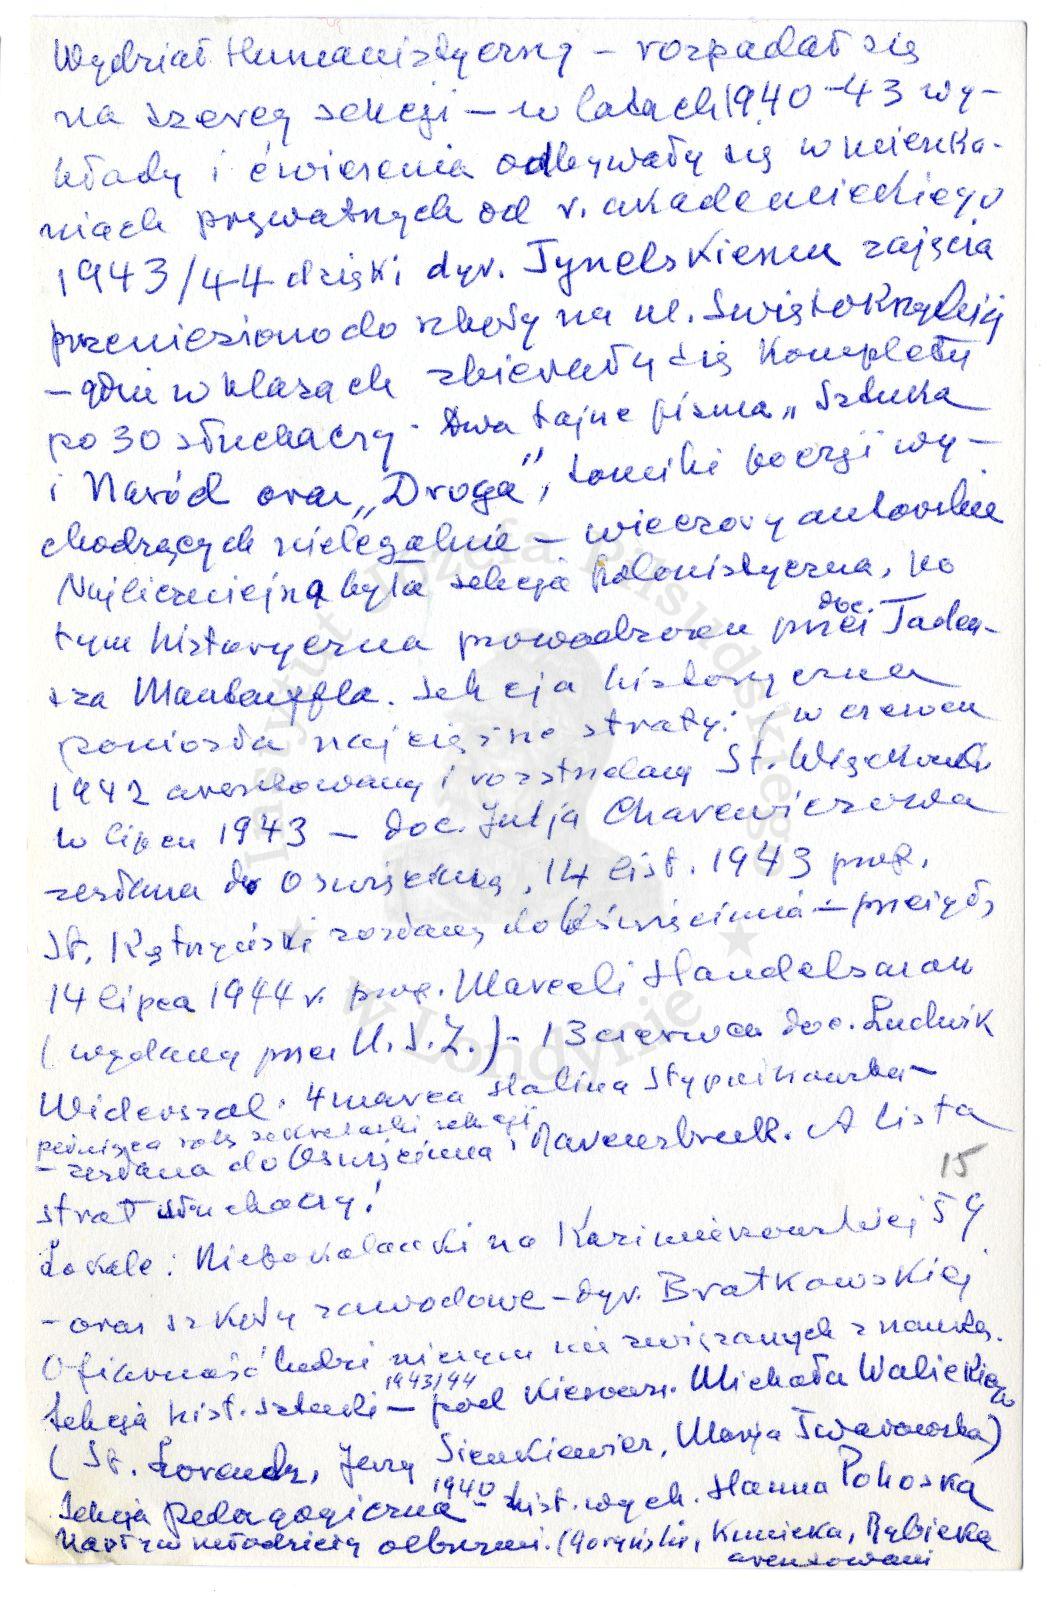 Wydział Humanistyczny – rozpadał się
na szereg sekcji – w latach 1940–43 wy-
kłady i ćwiczenia odbywały się w mieszka-
niach prywatnych od r. akademickiego
1943/44 dzięki dyr. Tynelskiemu zajęcia
przeniesiono do szkoły na ul. Świętokrzyskiej
– gdzie w klasach zbierały się komplety
po 30 słuchaczy. Dwa tajne pisma „Sztuka
i Naród oraz „Droga", tomiki poezji wy-
chodzących nielegalnie – wieczory autorskie
Najliczniejszą była sekcja polonistyczna, po
tym historyczna prowadzona przez doc. Tadeu-
sza Manteuffla. Sekcja historyczna
poniosła najcięższe straty: (w czerwcu
1942 aresztowany i rozstrzelany St. Więckowski
w lipcu 1943 – doc. Julja Charewiczowa
zesłana do Oświęcimia, 14 list. 1943 prof.
St. Kętrzyński zesłany do Oświęcimia – przeżył,
14 lipca 1944 r. prof. Marceli Handelsman
(wydany przez N.S.Z.) – 13 czerwca doc. Ludwik
Widerszal. 4 marca Halina Stypnikowska –
pełniąca rolę sekretarki sekcji
– zesłana do Oświęcimia, Ravensbruck. A lista
15
strat słuchaczy!
Lokale: Niepokalanki na Kazimierzowskiej 59
– oraz szkoły zawodowe – dyr. Bratkowskiej
Ofiarność ludzi niczym nie związanych z nauką.
Sekcja hist. sztuki 1943/44 – pod kierown. Michała Walickiego
(St. Lorentz, Jerzy Sienkiewicz, Maryja Twarowska)
Sekcja Pedagogiczna 1940 – hist. wych. Hanna Pohoska
Napływ młodzieży olbrzymi. (Goryński, Kunicka, Rybicka
aresztowani
Instytut Józefa Piłsudskiego
w Londynie